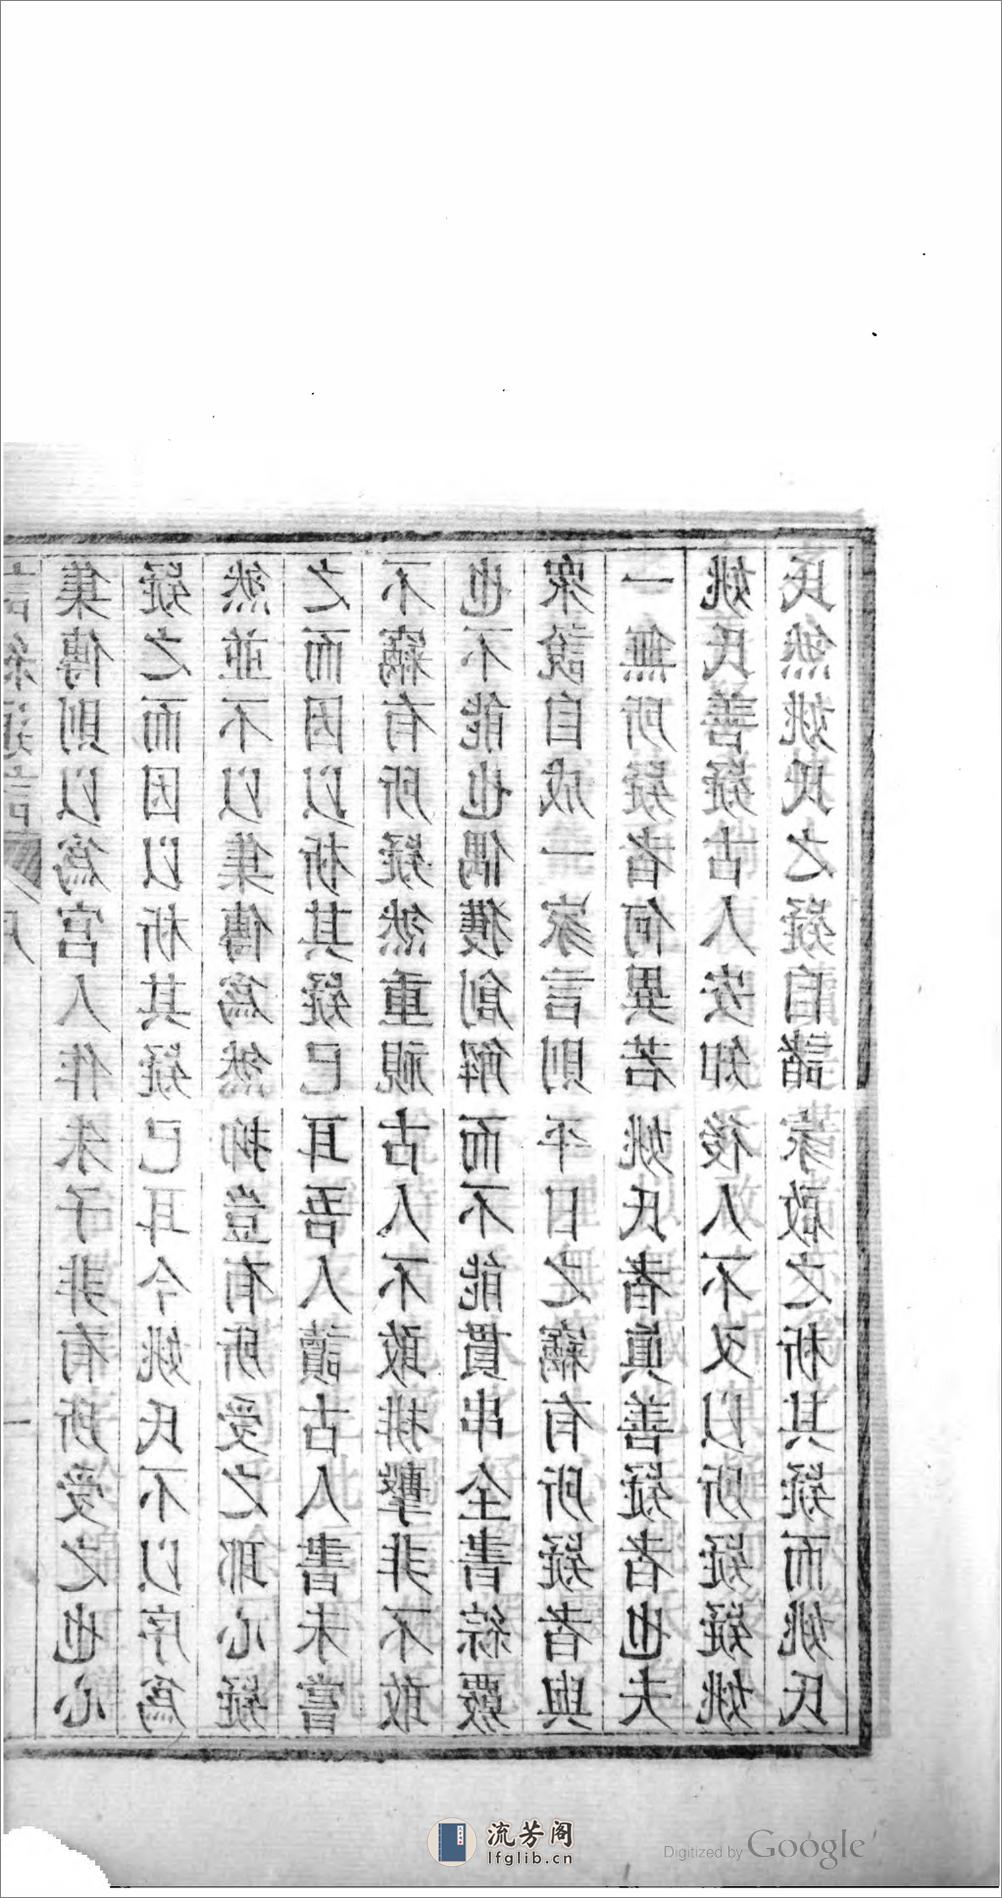 集傳則以爲宮人作朱子非有所受之也心
疑之而因以析其疑已耳今姚氏不以序爲
然並不以集傳爲然抑豈有所受之耶心疑
之而因以析其疑已耳吾人讀古人書未嘗
不竊有所疑然重視古人不敢排擊非不敢
也不能也偶獲創解而不能貫串全書綜覈
衆說自成一家言則平日之竊有所疑者與
一無所疑者何異若姚氏者眞善疑者也夫
姚氏善疑古人安知後人不又以所疑疑姚
氏然姚氏之疑自諸蒙啟之析其疑而姚氏
流芳阁
lfglib.cn
Digitized by Google